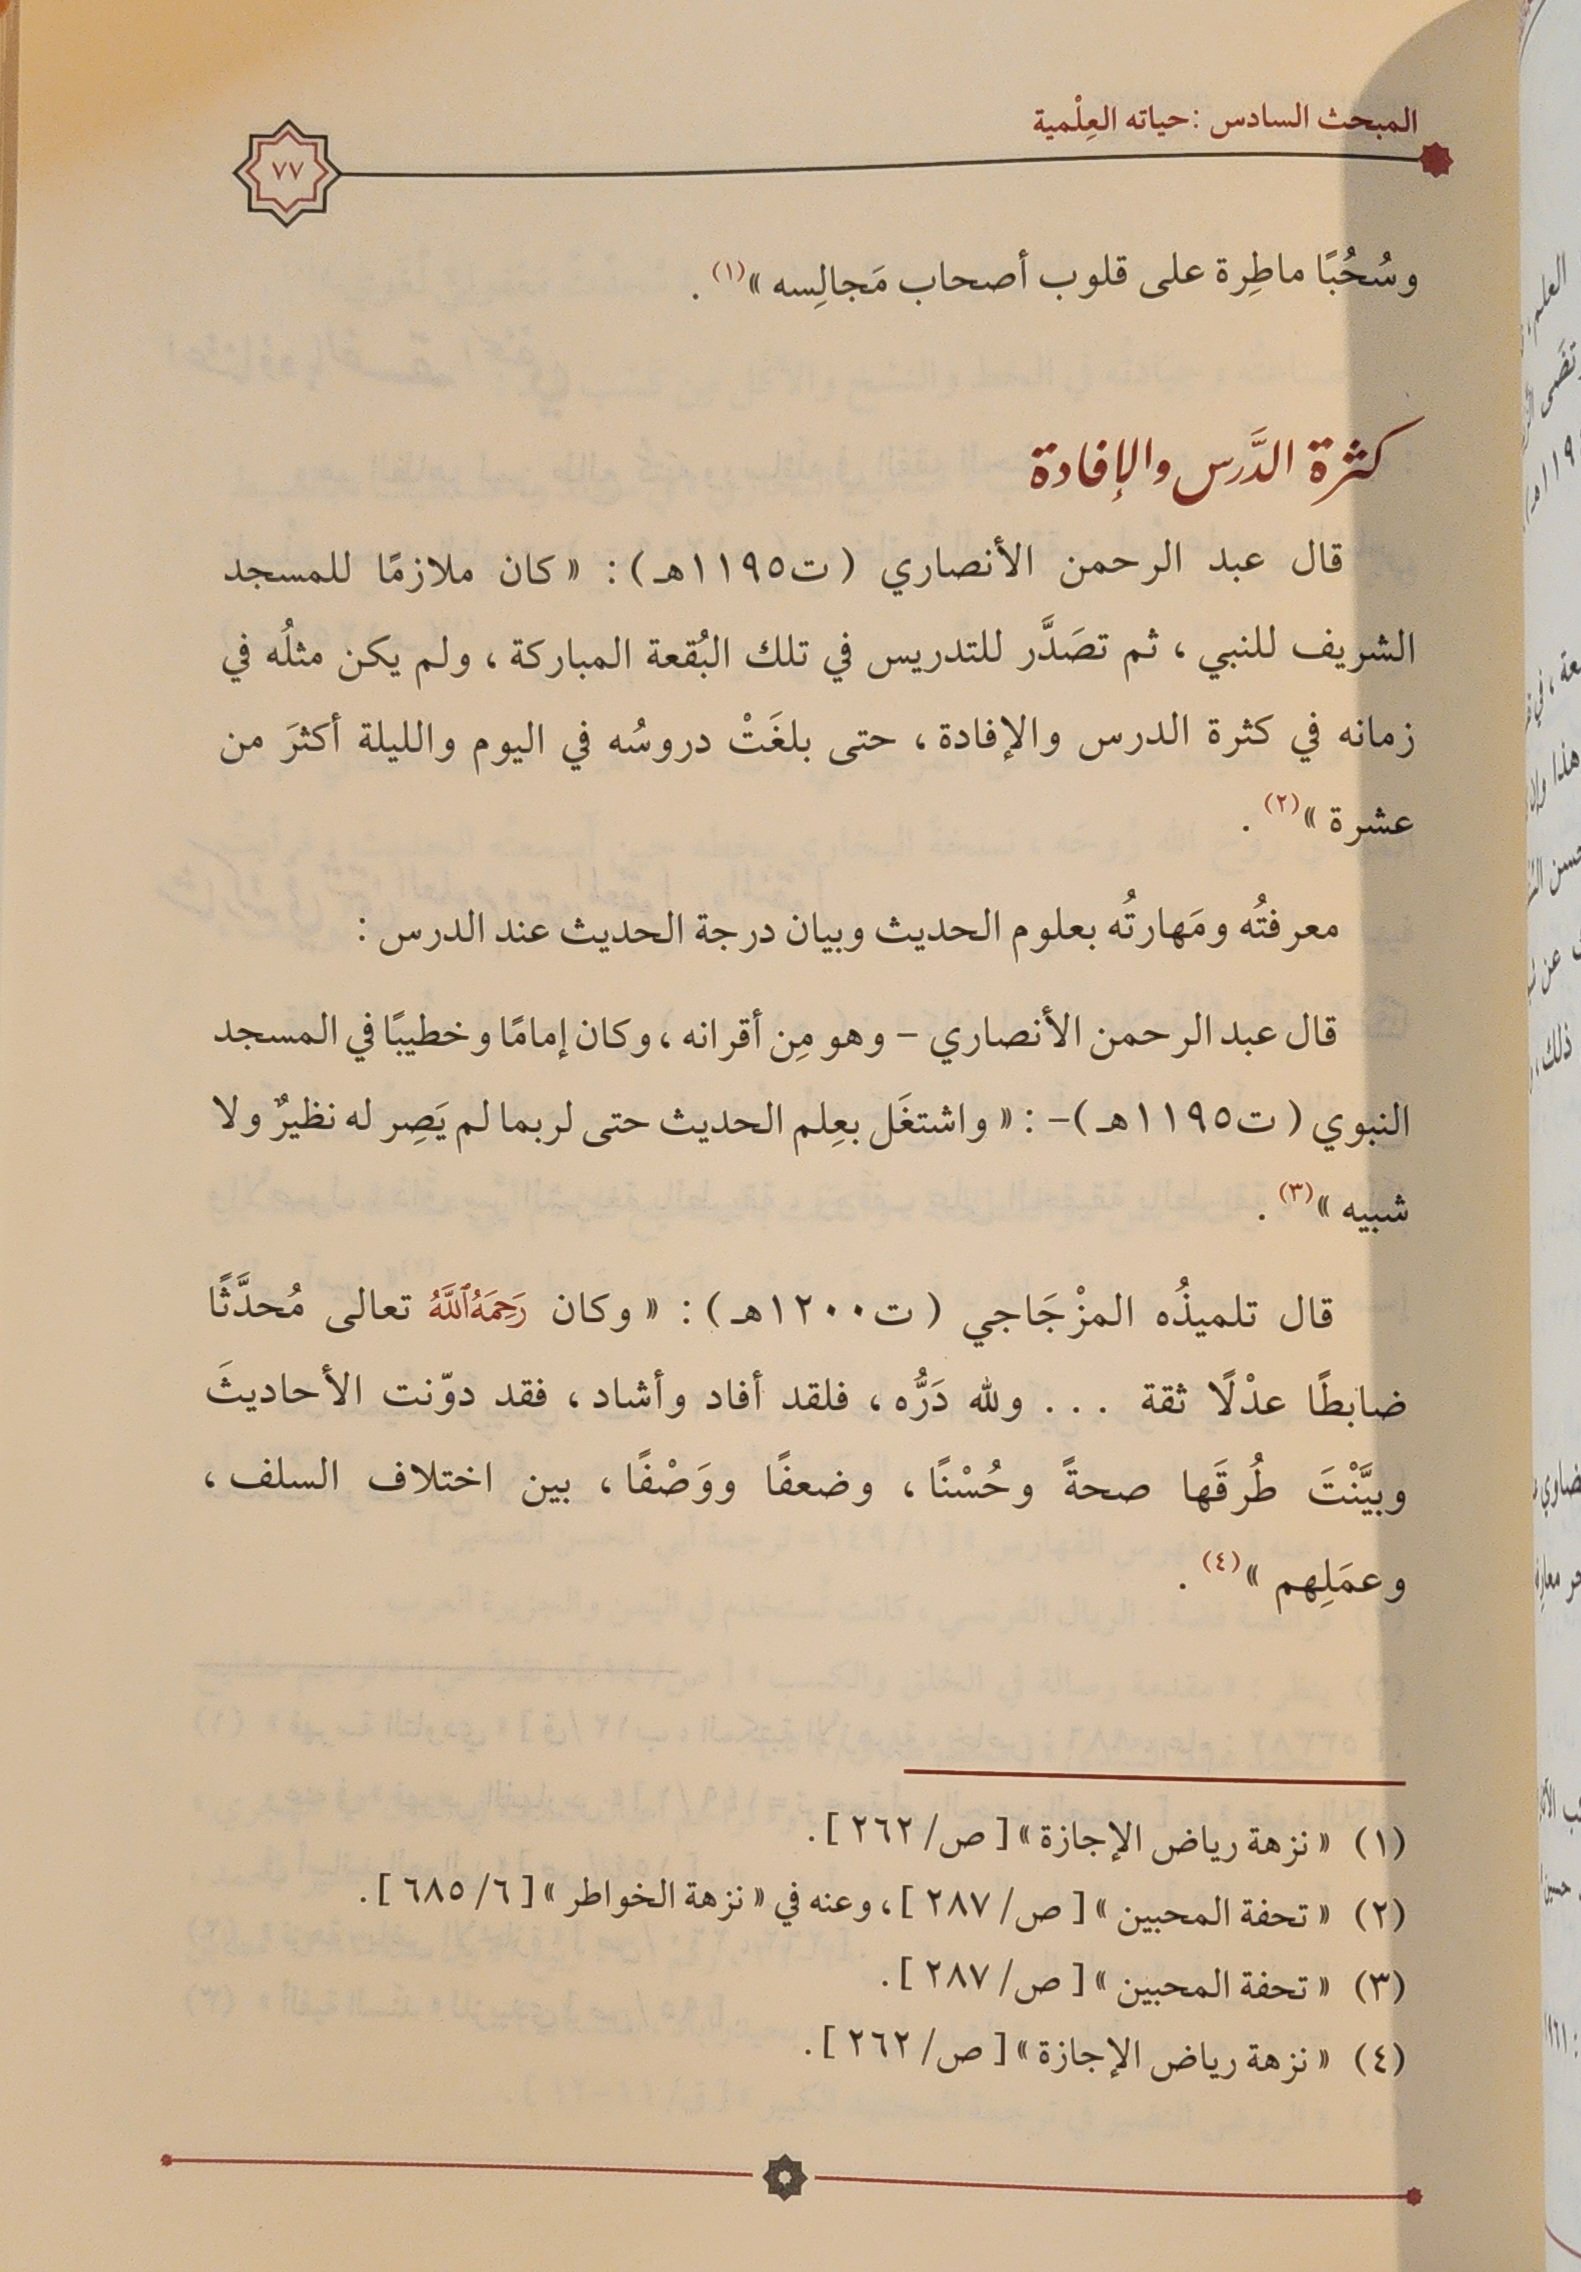 المبحث السادس : حياته العِلْمية
٧٧
وسُحُبًا ماطِرة على قلوب أصحاب مَجالِسه »(١) .
كثرة الدَّرس والإفادة
قال عبد الرحمن الأنصاري ( ت١١٩٥هـ ) : « كان ملازمًا للمسجد
الشريف للنبي ، ثم تصَدَّر للتدريس في تلك البُقعة المباركة ، ولم يكن مثلُه في
زمانه في كثرة الدرس والإفادة ، حتى بلغَتْ دروسُه في اليوم والليلة أكثرَ من
عشرة »(٢) .
معرفتُه ومَهارتُه بعلوم الحديث وبيان درجة الحديث عند الدرس :
قال عبد الرحمن الأنصاري – وهو مِن أقرانه ، وكان إمامًا وخطيبًا في المسجد
النبوي ( ت١١٩٥هـ )– : « واشتغَل بعِلم الحديث حتى لربما لم يَصِر له نظيرٌ ولا
شبيه »(٣) .
قال تلميذُه المزْجَاجي ( ت١٢٠٠هـ ) : « وكان رَحِمَهُ ٱللَّهُ تعالى مُحدَّثًا
ضابطًا عدْلًا ثقة . . . ولله دَرُّه ، فلقد أفاد وأشاد ، فقد دوّنت الأحاديثَ
وبيَّنْتَ طُرقَها صحةً وحُسْنًا ، وضعفًا ووَصْفًا ، بين اختلاف السلف ،
وعمَلِهم »(٤) .
(١) « نزهة رياض الإجازة » [ ص/ ٢٦٢ ] .
(٢) « تحفة المحبين » [ ص/ ٢٨٧ ] ، وعنه في « نزهة الخواطر » [ ٦/ ٦٨٥ ] .
(٣) « تحفة المحبين » [ ص/ ٢٨٧ ] .
(٤) « نزهة رياض الإجازة » [ ص/ ٢٦٢ ] .